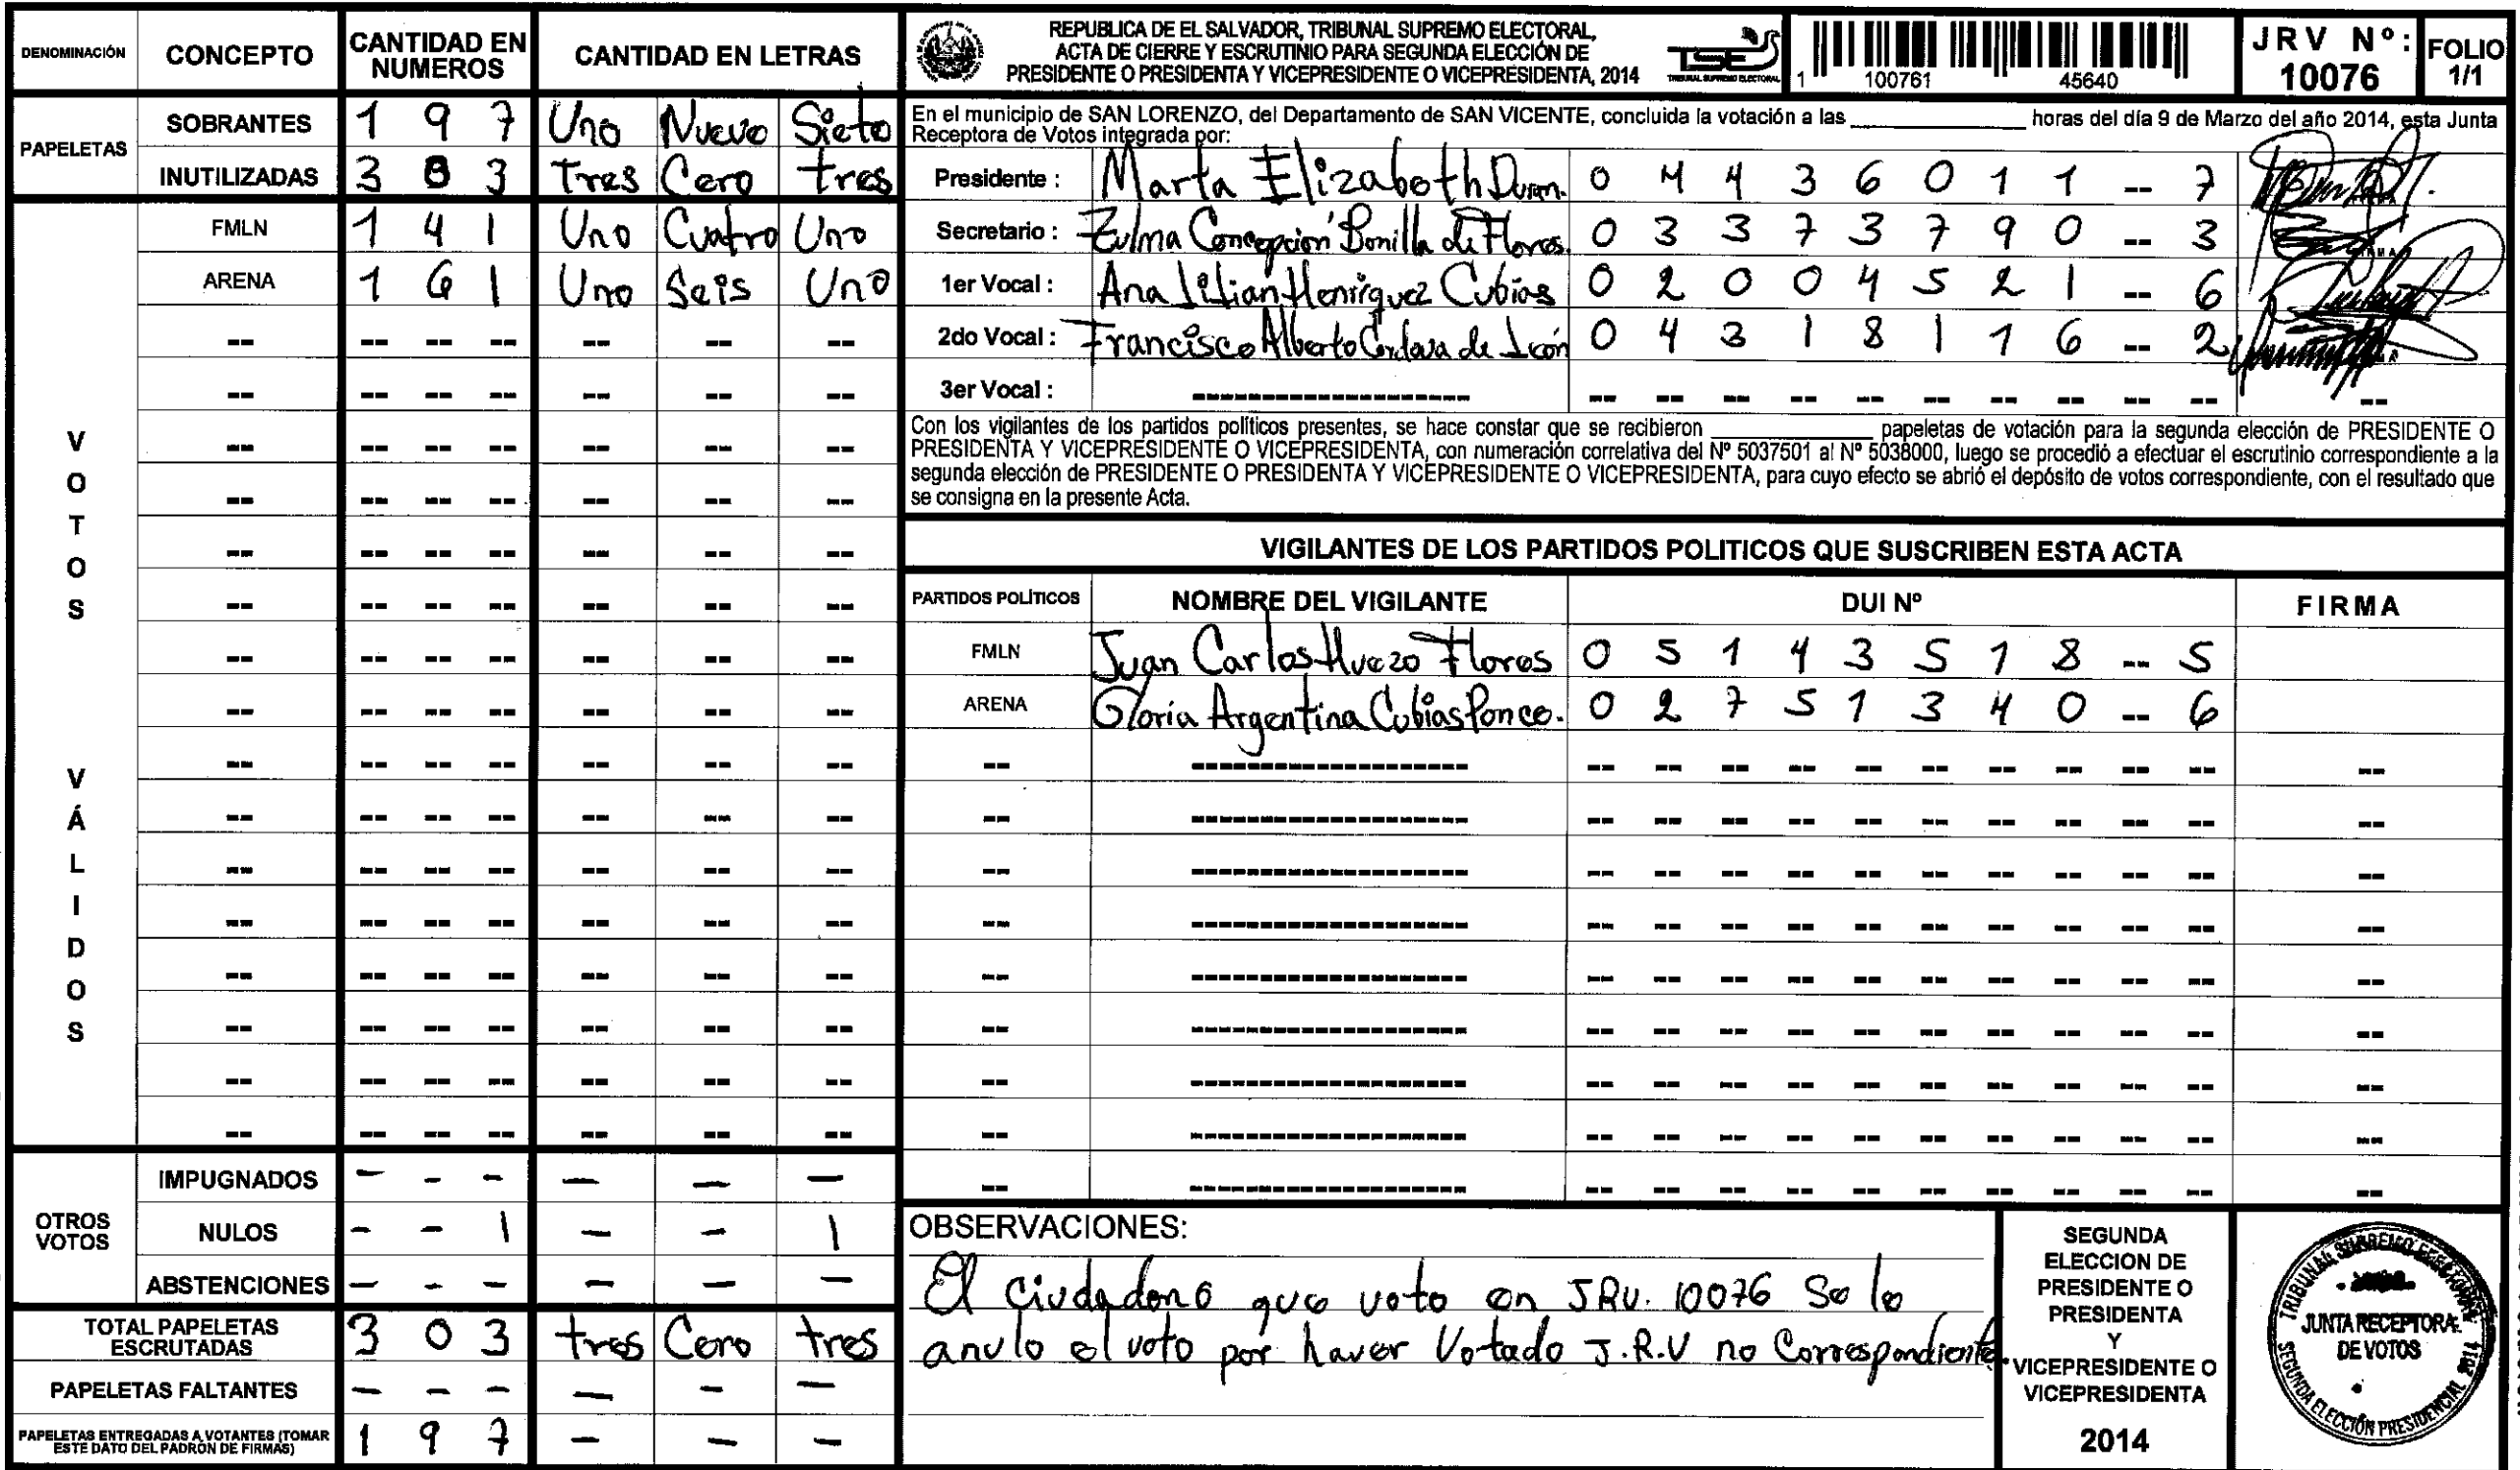 DENOMINACIÓN CONCEPTO CANTIDAD EN NUMEROS CANTIDAD EN LETRAS
PAPELETAS
SOBRANTES 1 9 7 Uno Nueve Siete
INUTILIZADAS 3 0 3 Tres Cero tres
VOTOS VÁLIDOS
FMLN 1 4 1 Uno Cuatro Uno
ARENA 1 6 1 Uno Seis Uno
OTROS VOTOS
IMPUGNADOS - - - - - -
NULOS - - 1 - - 1
ABSTENCIONES - - - - - -
TOTAL PAPELETAS ESCRUTADAS 3 0 3 tres Cero tres
PAPELETAS FALTANTES - - - - - -
PAPELETAS ENTREGADAS A VOTANTES (TOMAR ESTE DATO DEL PADRÓN DE FIRMAS) 1 9 7 - - -
REPUBLICA DE EL SALVADOR, TRIBUNAL SUPREMO ELECTORAL,
ACTA DE CIERRE Y ESCRUTINIO PARA SEGUNDA ELECCIÓN DE
PRESIDENTE O PRESIDENTA Y VICEPRESIDENTE O VICEPRESIDENTA, 2014
TSE
TRIBUNAL SUPREMO ELECTORAL
1 100761 45640
JRV Nº: 10076
FOLIO 1/1
En el municipio de SAN LORENZO, del Departamento de SAN VICENTE, concluida la votación a las ____ horas del día 9 de Marzo del año 2014, esta Junta
Receptora de Votos integrada por:
Presidente : Marta Elizabeth Duran. 0 4 4 3 6 0 1 1 -- 7
Secretario : Zulma Concepción Bonilla de Flores. 0 3 3 7 3 7 9 0 -- 3
1er Vocal : Ana Lilian Henriquez Cubias 0 2 0 0 4 5 2 1 -- 6
2do Vocal : Francisco Alberto Cordova de León 0 4 3 1 8 1 1 6 -- 2
3er Vocal :
Con los vigilantes de los partidos políticos presentes, se hace constar que se recibieron ____ papeletas de votación para la segunda elección de PRESIDENTE O
PRESIDENTA Y VICEPRESIDENTE O VICEPRESIDENTA, con numeración correlativa del Nº 5037501 al Nº 5038000, luego se procedió a efectuar el escrutinio correspondiente a la
segunda elección de PRESIDENTE O PRESIDENTA Y VICEPRESIDENTE O VICEPRESIDENTA, para cuyo efecto se abrió el depósito de votos correspondiente, con el resultado que
se consigna en la presente Acta.
VIGILANTES DE LOS PARTIDOS POLITICOS QUE SUSCRIBEN ESTA ACTA
PARTIDOS POLÍTICOS NOMBRE DEL VIGILANTE DUI Nº FIRMA
FMLN Juan Carlos Huezo Flores 0 5 1 4 3 5 1 8 -- 5
ARENA Gloria Argentina Cubias Ponce. 0 2 7 5 1 3 4 0 -- 6
OBSERVACIONES:
El Ciudadano que voto en JRV. 10076 Se le
anulo el voto por haver Votado J.R.V no Correspondiente.
SEGUNDA
ELECCION DE
PRESIDENTE O
PRESIDENTA
Y
VICEPRESIDENTE O
VICEPRESIDENTA
2014
TRIBUNAL SUPREMO ELECTORAL
JUNTA RECEPTORA
DE VOTOS
SEGUNDA ELECCIÓN PRESIDENCIAL 2014